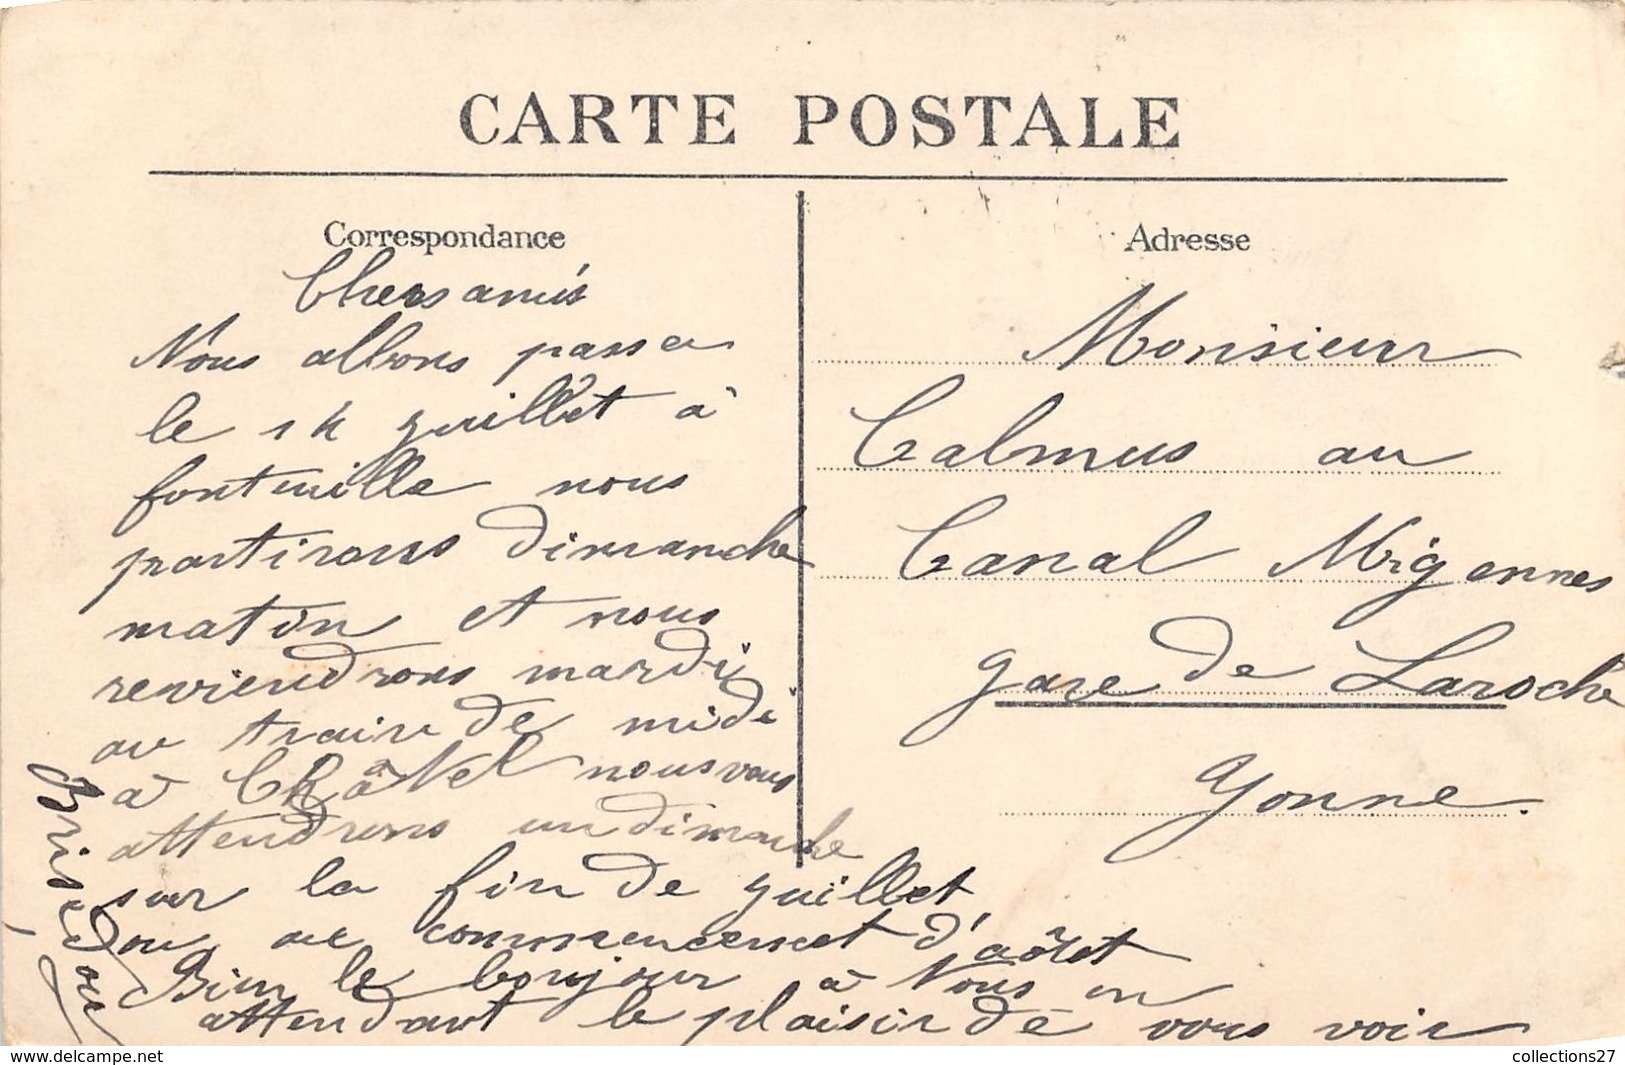 CARTE POSTALE
Correspondance
Chers amis
Nous allons passer
le 14 juillet à
fontenille nous
partirons dimanche
matin et nous
reviendrons mardi
au train de midi
à Châtel nous vous
attendrons un dimanche
sur la fin de juillet
ou au commencement d'aôut
Bien le bonjour à Vous en
attendant le plaisir de vous voir
Adresse
Monsieur
Calmus au
Canal Migennes
gare de Laroche
Yonne.
collections27